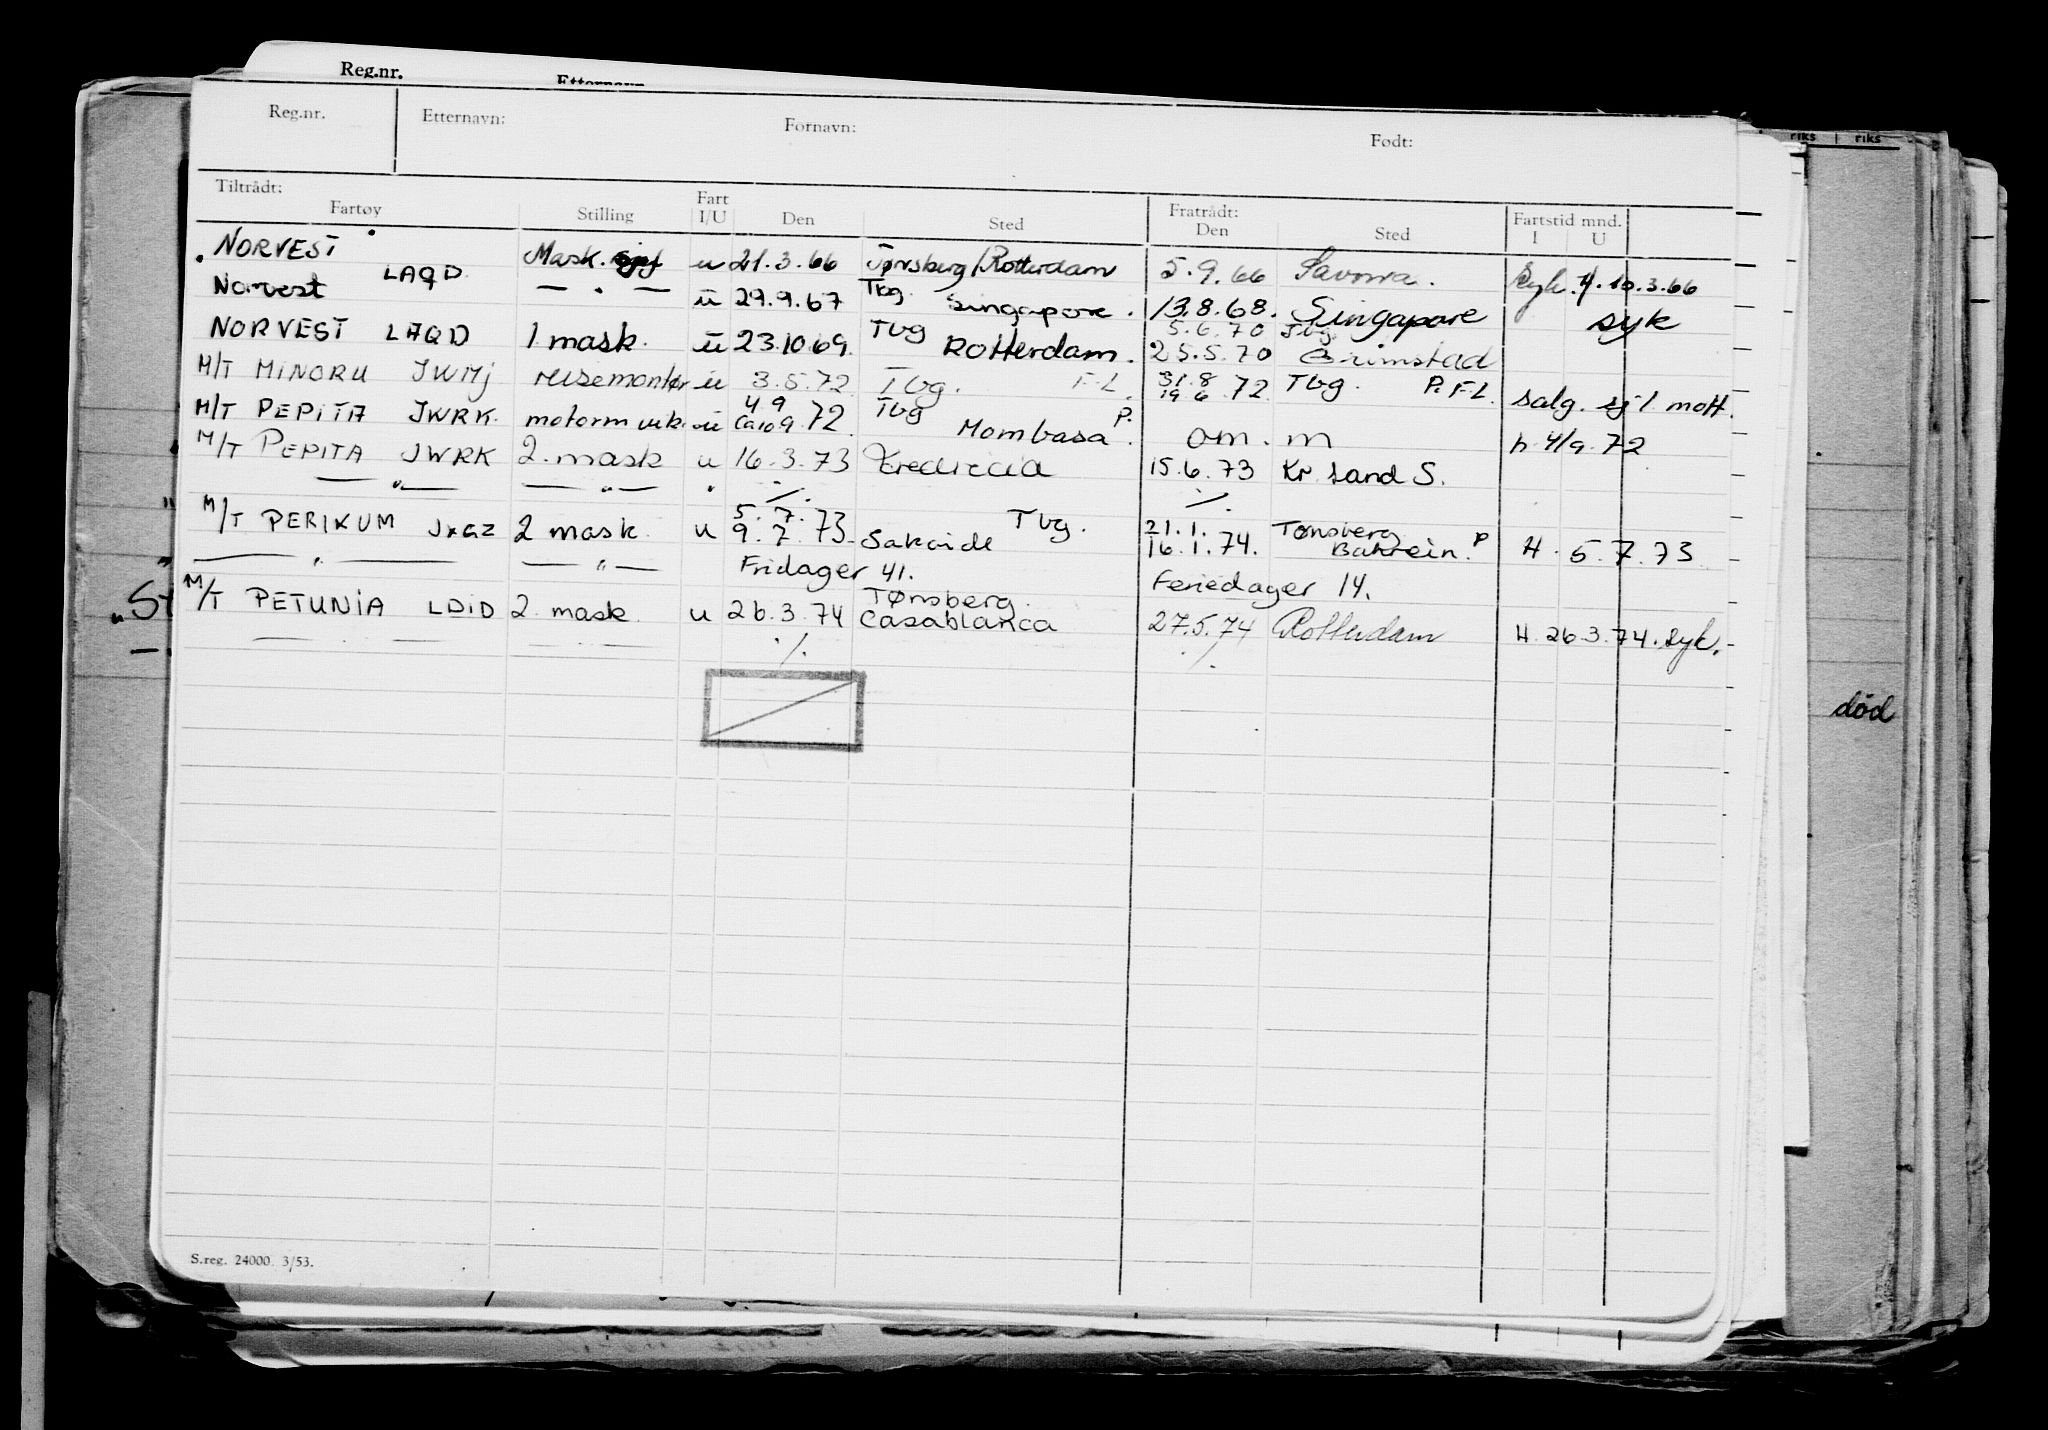 Reg.nr.
riks riks
Reg.nr. Etternavn: Fornavn: Født:
Tiltrådt: Fratrådt: Fartstid mnd.
Fartøy Stilling Fart I/U Den Sted Den Sted I U
NORVEST LAQD Mask. u 21.3.66 Tønsberg/Rotterdam 5.9.66 Savona. Syk. H. 10.3.66
Norvest — " — u 29.9.67 Tbg. Singapore. 13.8.68. Singapore syk
5.6.70 Tbg.
NORVEST LAQD 1 mask. u 23.10.69. Tbg Rotterdam. 25.5.70 Grimstad
M/T MINORU JWMJ reisemontør u 3.5.72 Tbg. F.L. 31.8 19.6 72 Tbg. P. F.L. salg. sj l. mott.
M/T PEPITA JWRK. motorm vik. u 4.9 ca 10 9.72. Tbg Mombasa P. om. m h 4/9.72
M/T PEPITA JWRK 2. mask u 16.3.73 Fredricia 15.6.73 Kr. sand S.
— " — — " — " ./. ./.
M/T PERIKUM JXGZ 2 mask. u 5.7.73 9.7.73. Tbg. Sakaide 21.1. 16.1.74. Tønsberg Bahrein. P H. 5.7.73
— " — — " — Fridager 41. Feriedager 14.
M/T PETUNIA LDID 2. mask. u 26.3.74 Tønsberg. Casablanca 27.5.74 Rotterdam H. 26.3.74. syk.
./. ./.
død
S.reg. 24000. 3/53.